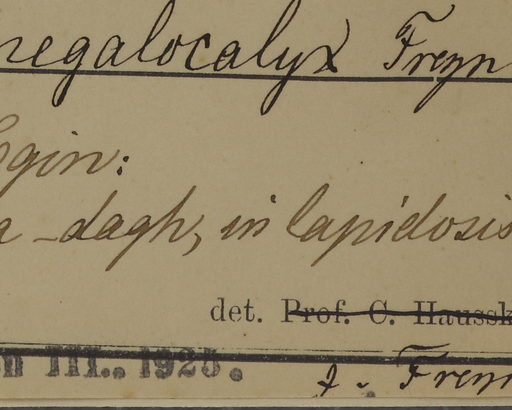 megalocalyx Freyn
Egin:
a-dagh, in lapidosis
det. Prof. C. Haussk
n III., 1925.
J. Freyn